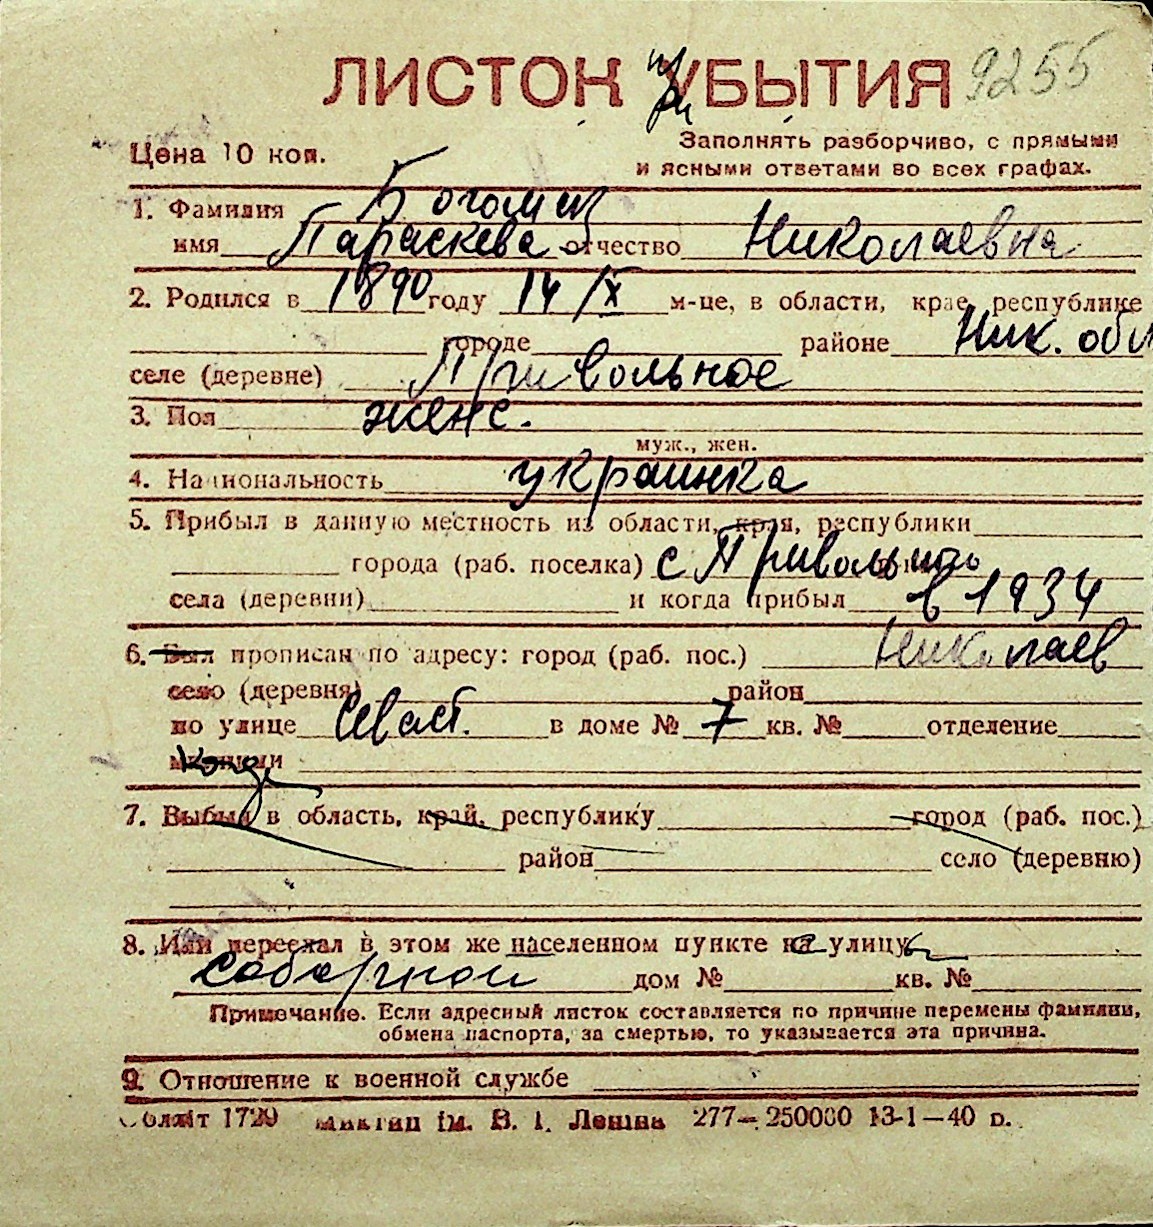 ЛИСТОК УБЫТИЯ 9255
при
Цена 10 коп.
Заполнять разборчиво, с прямыми
и ясными ответами во всех графах.
1. Фамилия Богомаз
имя Параскева отчество Николаевна
2. Родился в 1890 году 14/X м-це, в области, крае, республике
городе районе Ник. обл
селе (деревне) Привольное
3. Пол женс.
муж., жен.
4. Национальность украинка
5. Прибыл в данную местность из области, края, республики
города (раб. поселка) с Привольное
села (деревни) и когда прибыл в 1934
6. Был прописан по адресу: город (раб. пос.) Николаев
село (деревня) район
по улице Сваст. в доме № 7 кв. № отделение
милиции
7. Выбыл в область, край, республику город (раб. пос.)
район село (деревню)
8. Или переехал в этом же населенном пункте с улицы
соборной дом № кв. №
Примечание. Если адресный листок составляется по причине перемены фамилии,
обмена паспорта, за смертью, то указывается эта причина.
9. Отношение к военной службе
Обллiт 1729 ім. В. І. Ленiна 277—250000 13-1—40 р.